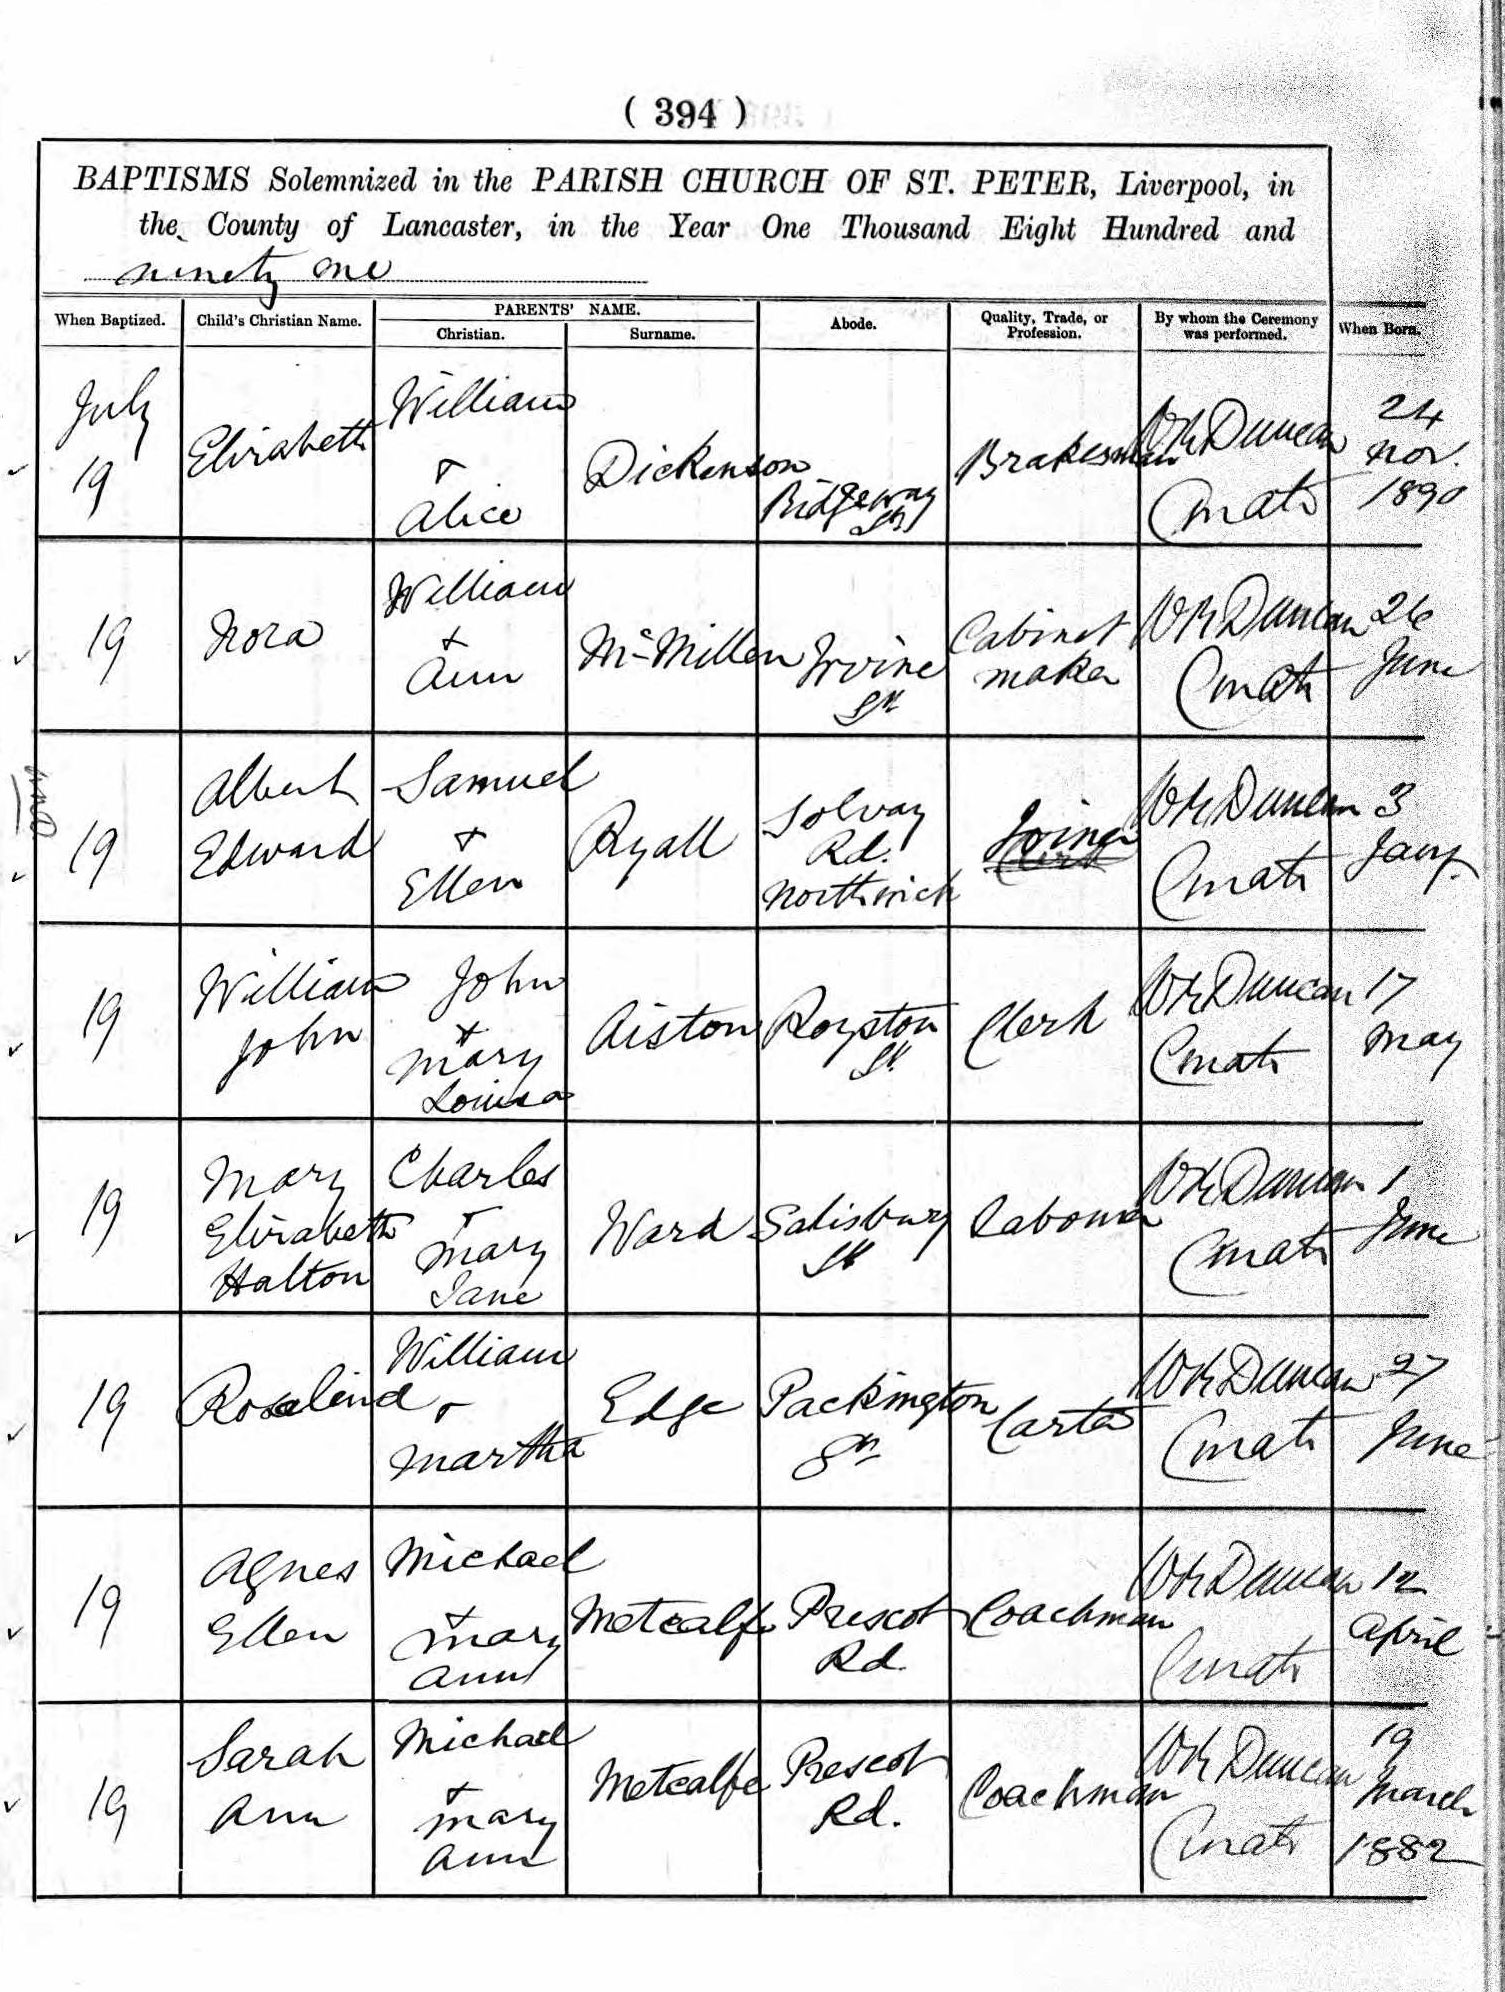 ( 394 )
BAPTISMS Solemnized in the PARISH CHURCH OF ST. PETER, Liverpool, in
the County of Lancaster, in the Year One Thousand Eight Hundred and
ninety one
When Baptized. Child's Christian Name. PARENTS' NAME. Abode. Quality, Trade, or Profession. By whom the Ceremony was performed. When Born.
Christian. Surname.
July 19 Elizabeth William & Alice Dickenson Bidgeway St Brakesman W Duncan Curate 24 Nov. 1890
19 Nora William & Ann McMillen Irvine St Cabinet maker W Duncan Curate 26 June
19 Albert Edward Samuel & Ellen Ryall Solvay Rd. Northwich Joiner Clerk W Duncan Curate 3 Jany.
19 William John John & Mary Louisa Aiston Royston St. Clerk W Duncan Curate 17 May
19 Mary Elizabeth Halton Charles & Mary Jane Ward Salisbury St Labourer W Duncan Curate 1 June
19 Rosalind William & Martha Edge Packington St Carter W Duncan Curate 27 June
19 Agnes Ellen Michael & Mary Ann Metcalfe Prescot Rd. Coachman W Duncan Curate 12 April
19 Sarah Ann Michael & Mary Ann Metcalfe Prescot Rd. Coachman W Duncan Curate 19 March 1882